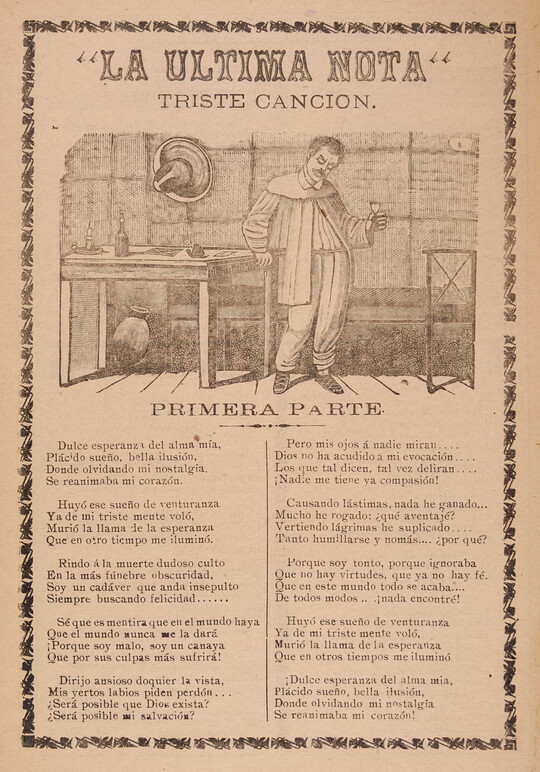 “LA ULTIMA NOTA“
TRISTE CANCION.
PRIMERA PARTE.
Dulce esperanza del alma mía,
Plácido sueño, bella ilusión,
Donde olvidando mi nostalgía.
Se reanimaba mi corazón.
Huyó ese sueño de venturanza
Ya de mi triste mente voló,
Murió la llama de la esperanza
Que en otro tiempo me iluminó.
Rindo á la muerte dudoso culto
En la más fúnebre obscuridad,
Soy un cadáver que anda insepulto
Siempre buscando felicidad......
Sé que es mentira que en el mundo haya
Que el mundo nunca me la dará
¡Porque soy malo, soy un canaya
Que por sus culpas más sufrirá!
Dirijo ansioso doquier la vista,
Mis yertos labios piden perdón...
¿Será posible que Dios exista?
¿Será posible mi salvación?
Pero mis ojos á nadie miran....
Dios no ha acudido á mi evocación....
Los que tal dicen, tal vez deliran....
¡Nadie me tiene ya compasión!
Causando lástimas, nada he ganado...
Mucho he rogado: ¿qué aventajé?
Vertiendo lágrimas he suplicado....
Tanto humillarse y nomás.... ¿por qué?
Porque soy tonto, porque ignoraba
Que no hay virtudes, que ya no hay fé.
Que en este mundo todo se acaba....
De todos modos .. .¡nada encontré!
Huyó ese sueño de venturanza
Ya de mi triste mente voló,
Murió la llama de la esperanza
Que en otros tiempos me iluminó
¡Dulce esperanza del alma mia,
Plácido sueño, bella ilusión,
Donde olvidando mi nostalgia
Se reanimaba mi corazón!